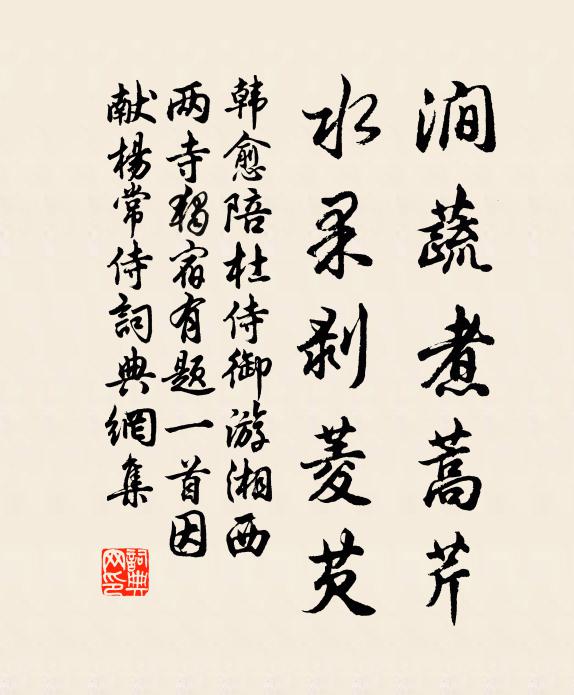 澗蔬煮蒿芹
水果剥菱芡
韩愈陪杜侍御游湘西
两寺獨宿有题一首因
献楊常侍詞典網集
詞典
网印